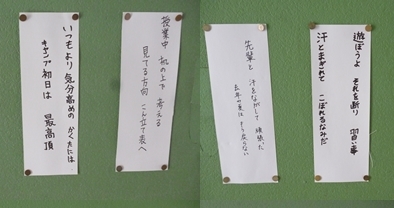 遊ぼうよ それを断り 習い事
汗とまぎれて こぼれるなみだ
先輩と 汗をながして 頑張った
去年の夏は もう戻らない
授業中 机の上で 考える
見てる方向 こんだて表へ
いつもより 気分高めの かくたには
キャンプ初日は 最高頂